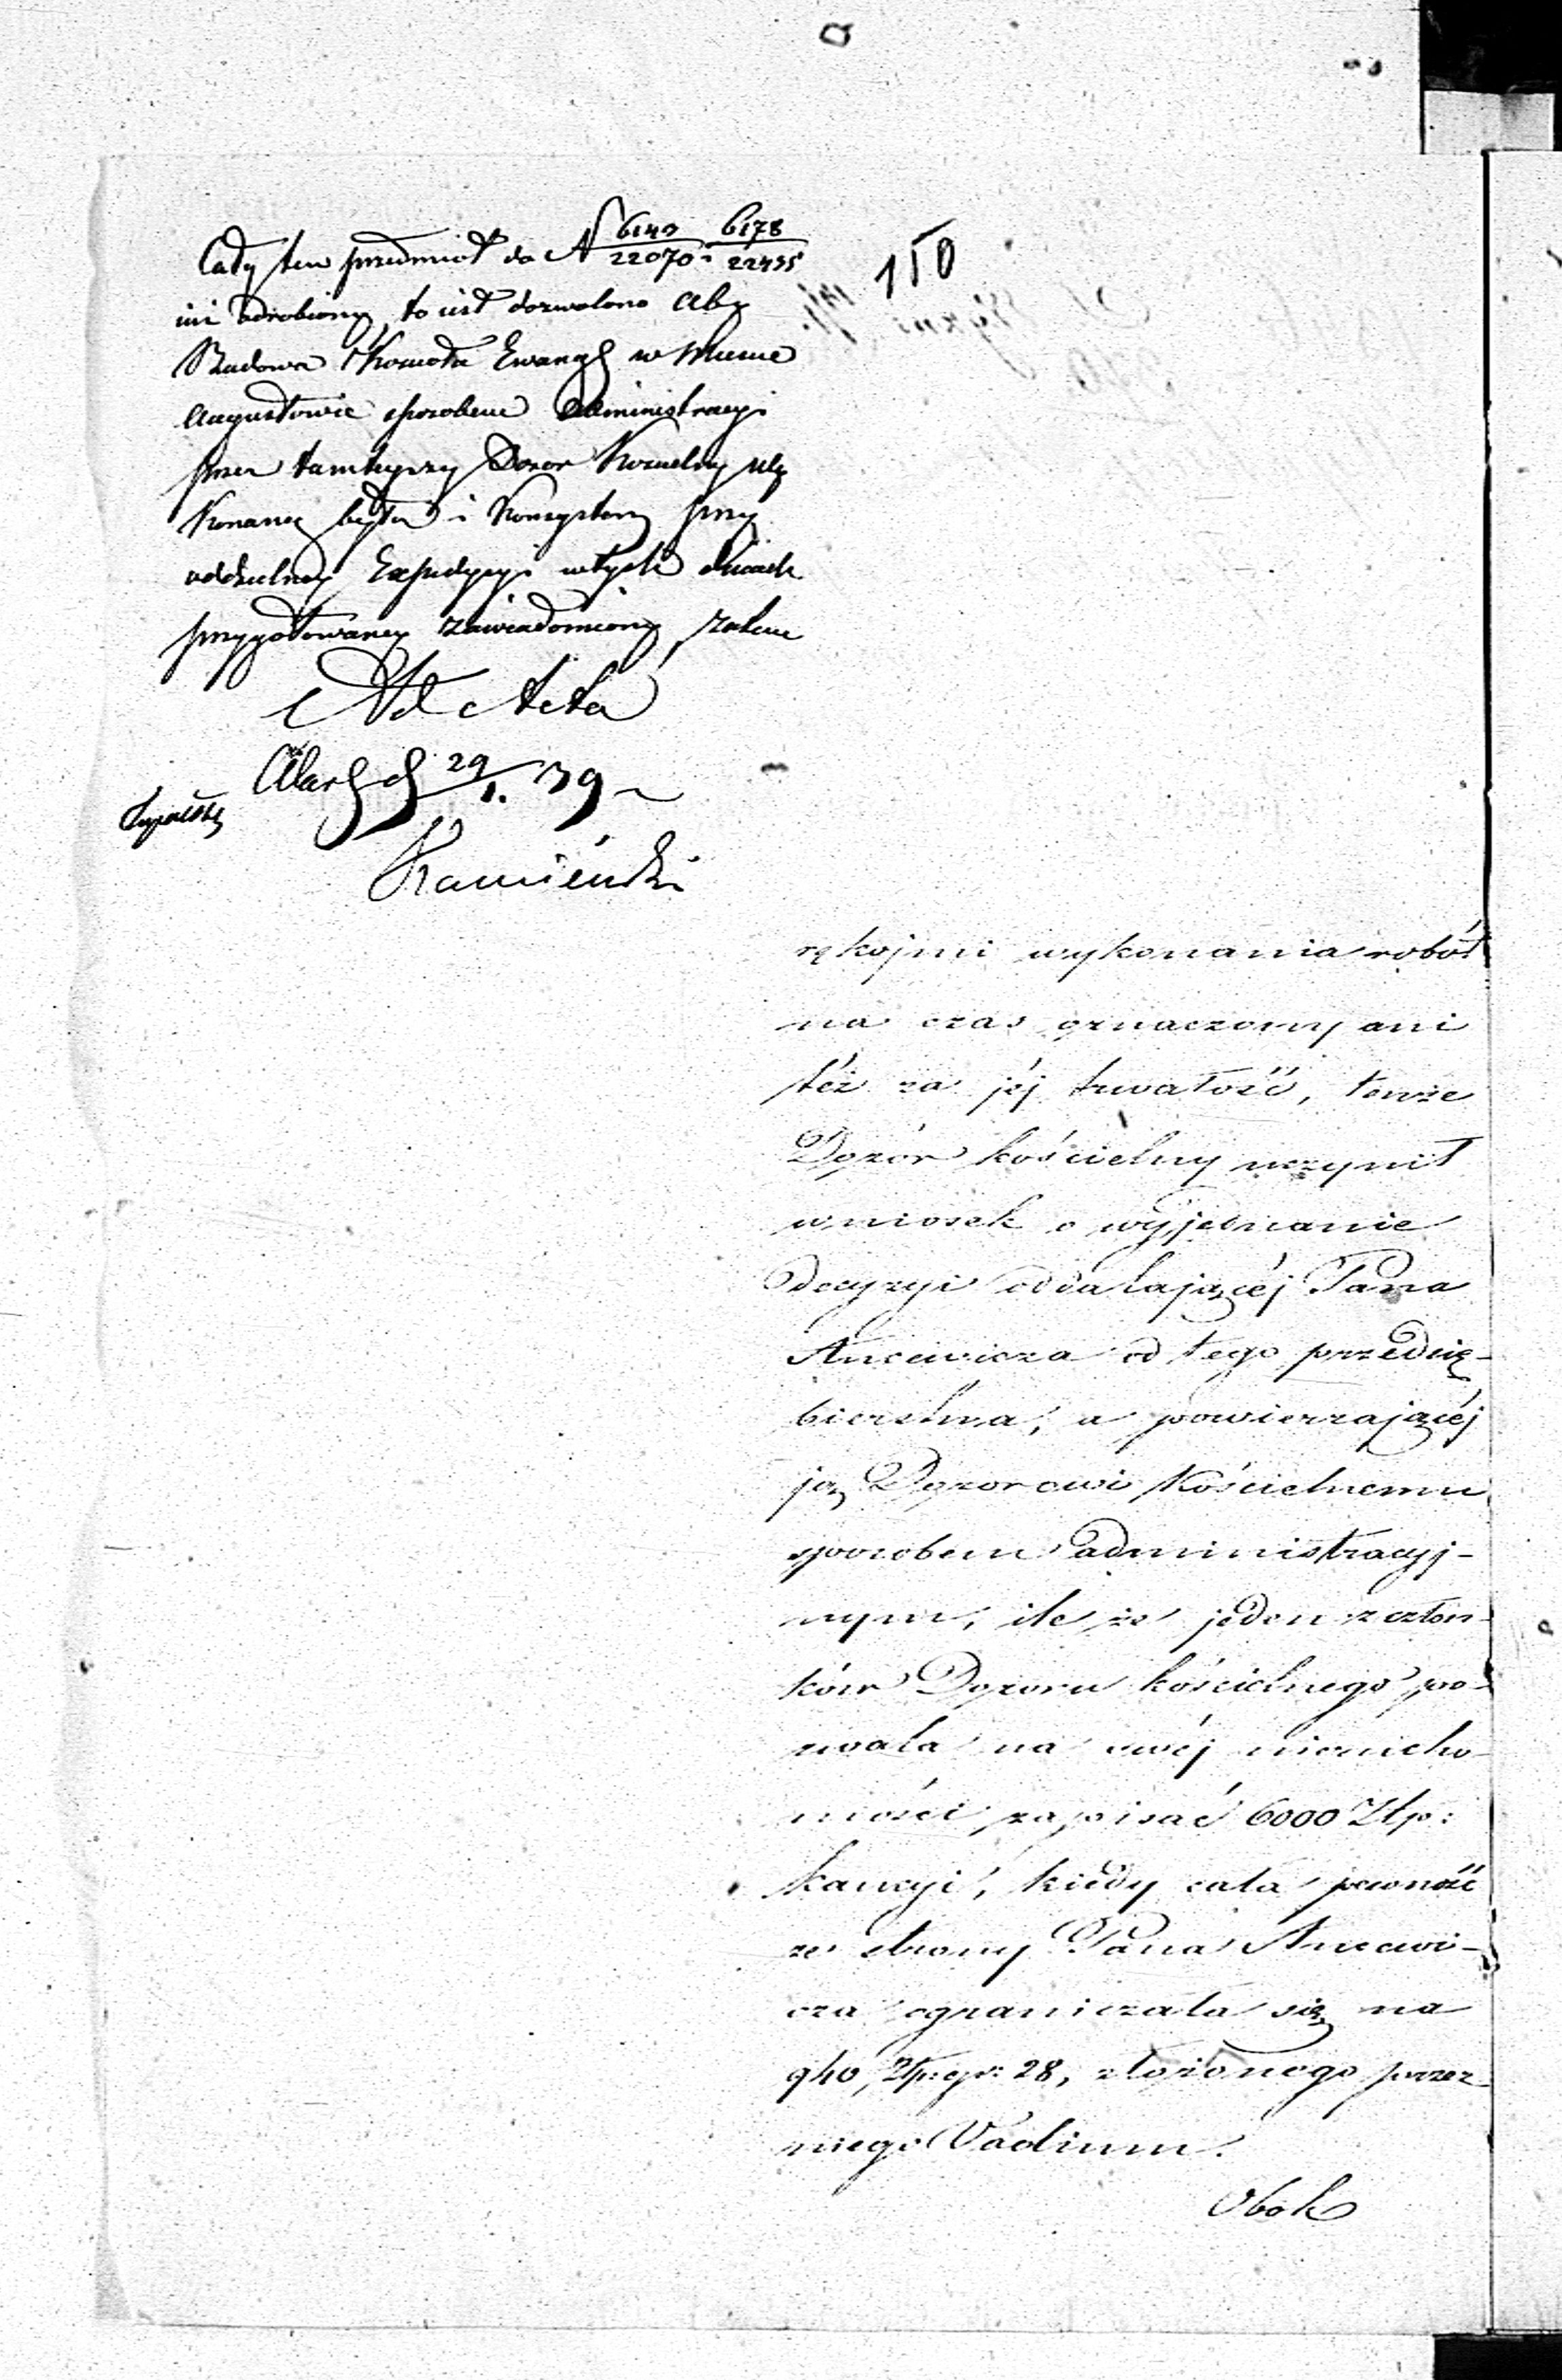 Cały ten przedmiot do N 6143/22070 i 6178/22455
już odrobiony, to jest dozwolono aby
Budowa Kościoła Ewangl w Mieście
Augustowie sposobem Administracyi
przez tamtejszy Dozor Kościelny wy
konaną była i Konsystorz przy
oddzielney Expedycyi w tych dniach
przygotowaney zawiadomiony, zatem
Ad Acta
29/1. 39
Kamieński
150
rękojmi wykonania robót
na czas oznaczony ani
téż za jéj trwałość, tenże
Dozór kościelny uczynił
wniosek o wyjednanie
decyzyi oddalającéj Pana
Ancewicza od tego przedsię-
bierstwa, a powierzającéj
ją Dozorowi Kościelnemu
sposobem administracyj-
nym, ile że jeden z człon-
ków Dozoru kościelnego po-
zwala na swéj nierucho-
mości zapisać 6000 Złp:
kaucyi, kiedy cała pewność
ze strony Pana Ancewi-
cza ograniczała się na
940, Złp: gr: 28, złożonego przez
niego Vadium.
Obok